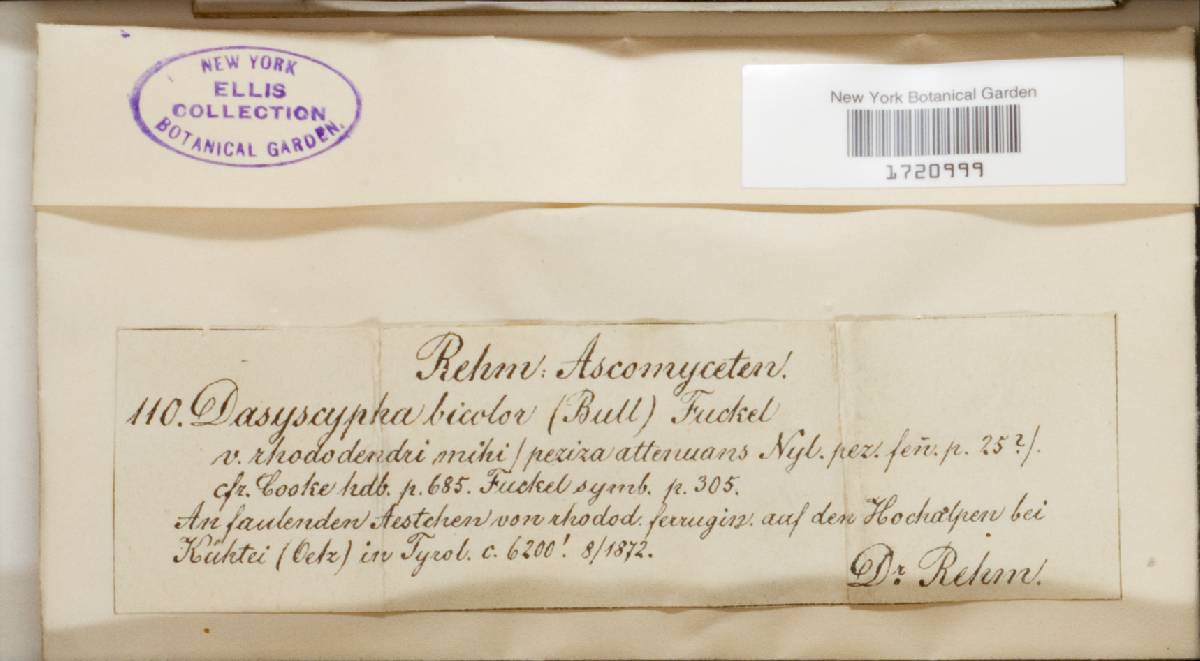 NEW YORK
ELLIS
COLLECTION
BOTANICAL GARDEN.
New York Botanical Garden
1720999
Rehm: Ascomyceten.
110. Dasyscypha bicolor (Bull) Fuckel
v. rhododendri mihi / peziza attenuans Nyl. pez. fen̄. p. 25?/.
cfr. Cooke hdb. p. 685. Fuckel symb. p. 305.
An faulenden Aestchen von rhodod. ferrugin. auf den Hochalpen bei
Kühtei (Oetz) in Tyrol. c. 6200'. 8/1872.
Dr Rehm.